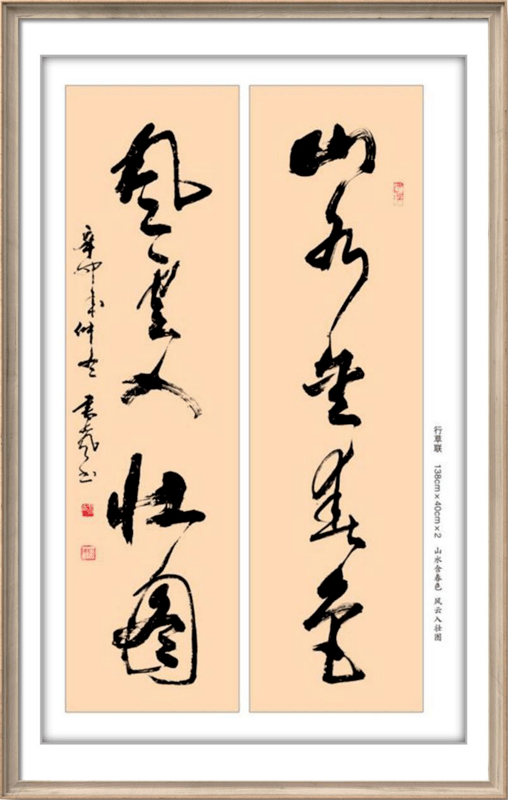 山水含春色
風雲入壮圖
辛卯年仲冬 书
行草联 138cm×40cm×2 山水含春色 风云入壮图